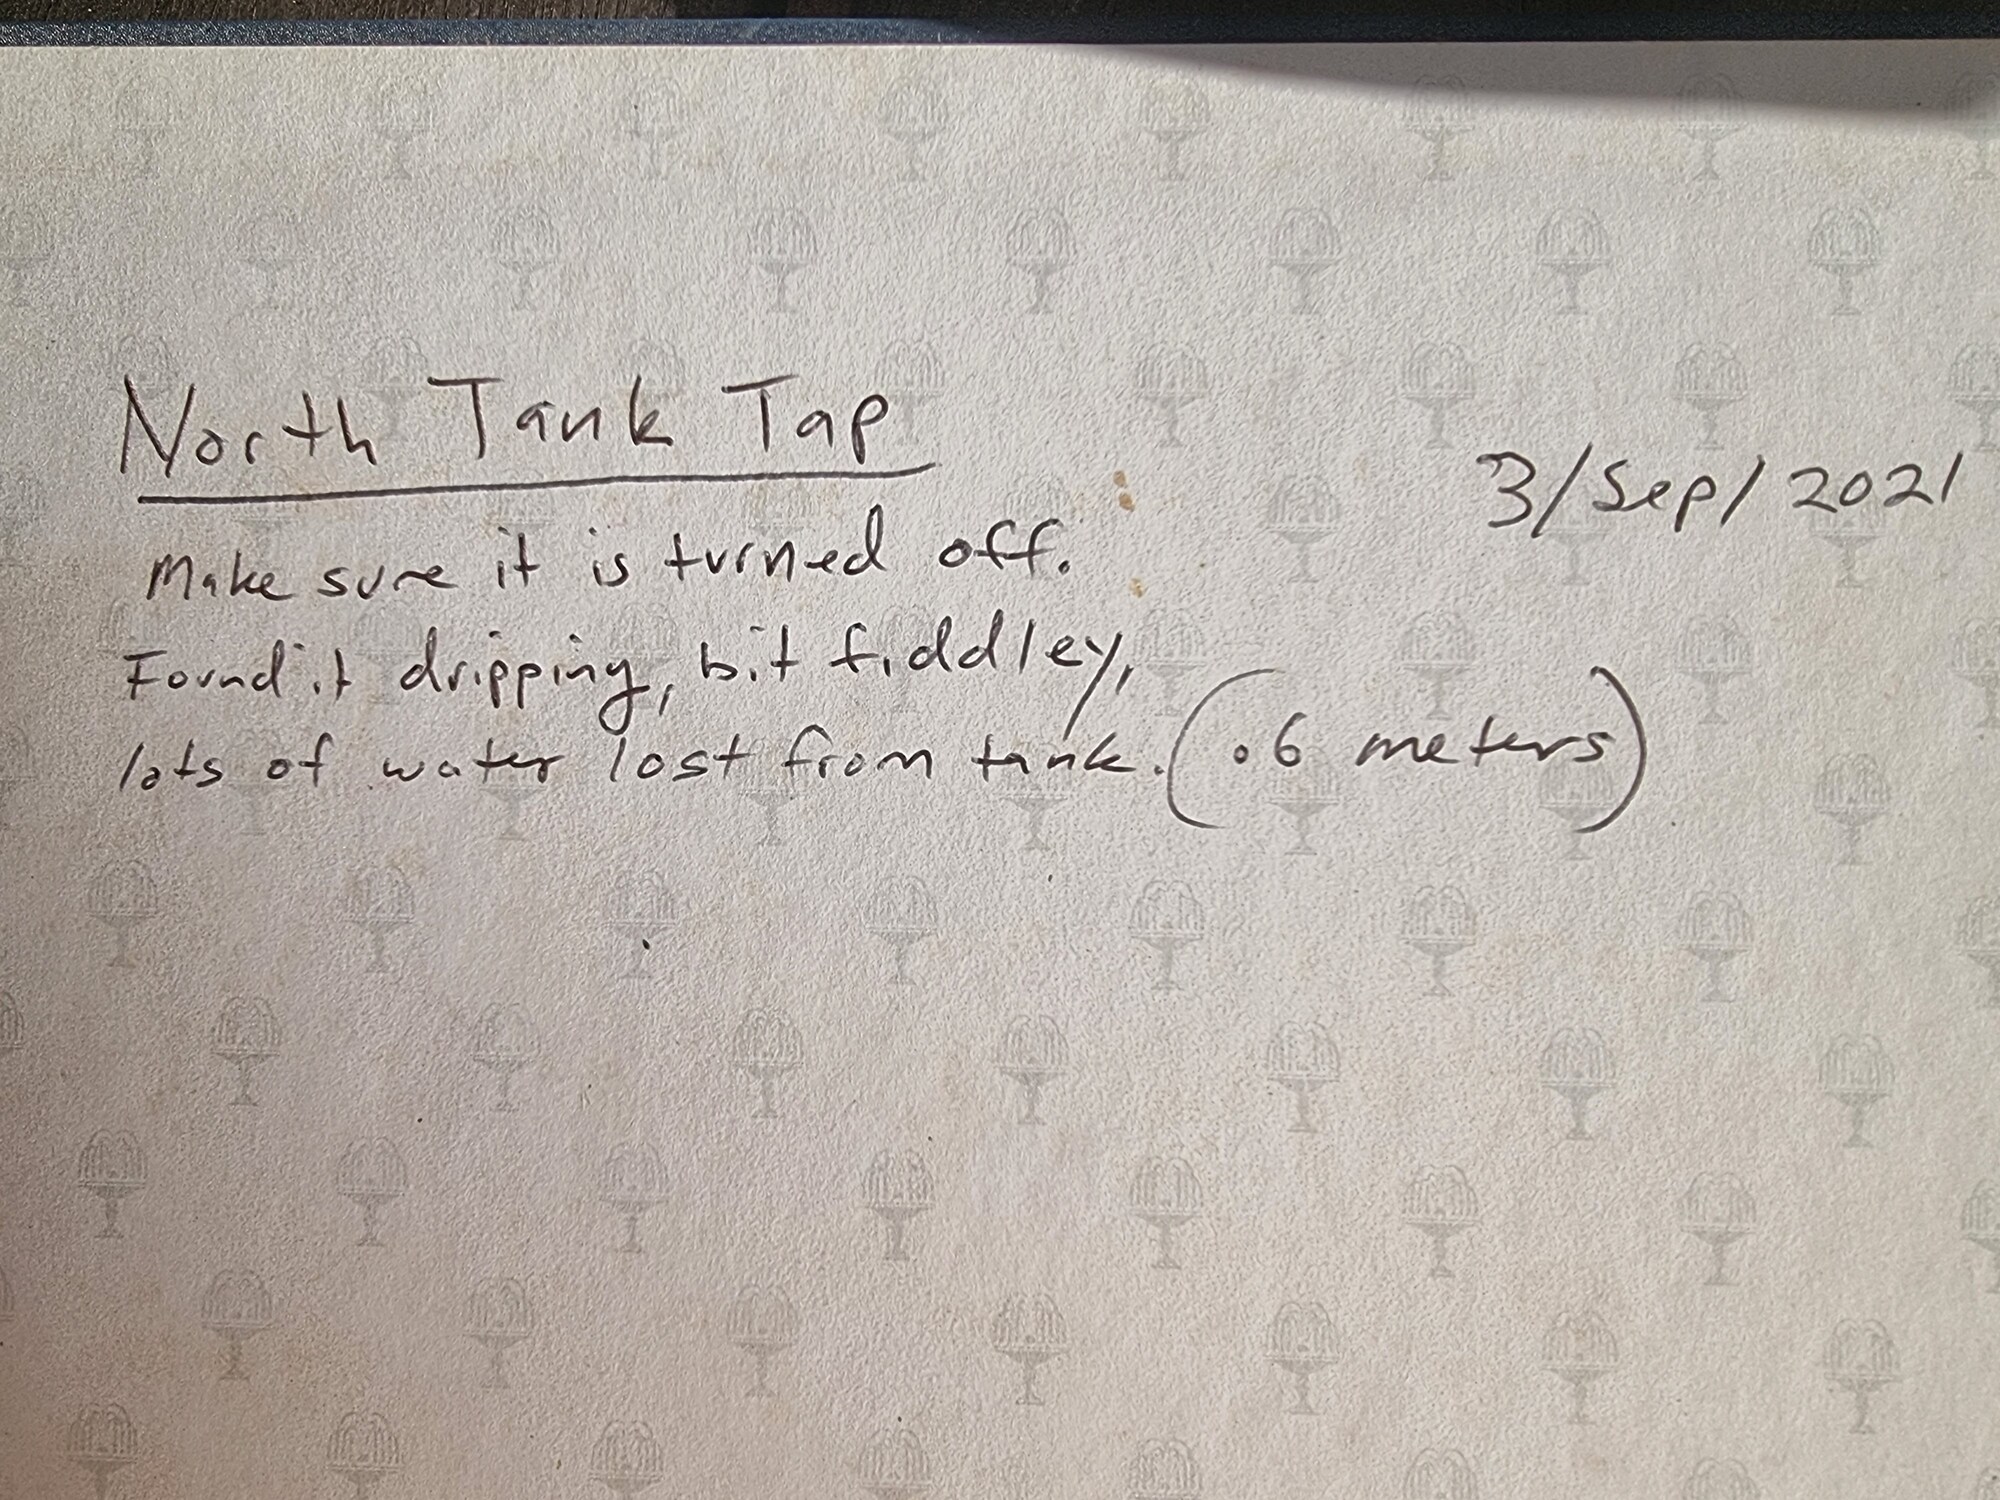 North Tank Tap
3/Sep/2021
Make sure it is turned off.
Found it dripping, bit fiddley,
lots of water lost from tank. (.6 meters)